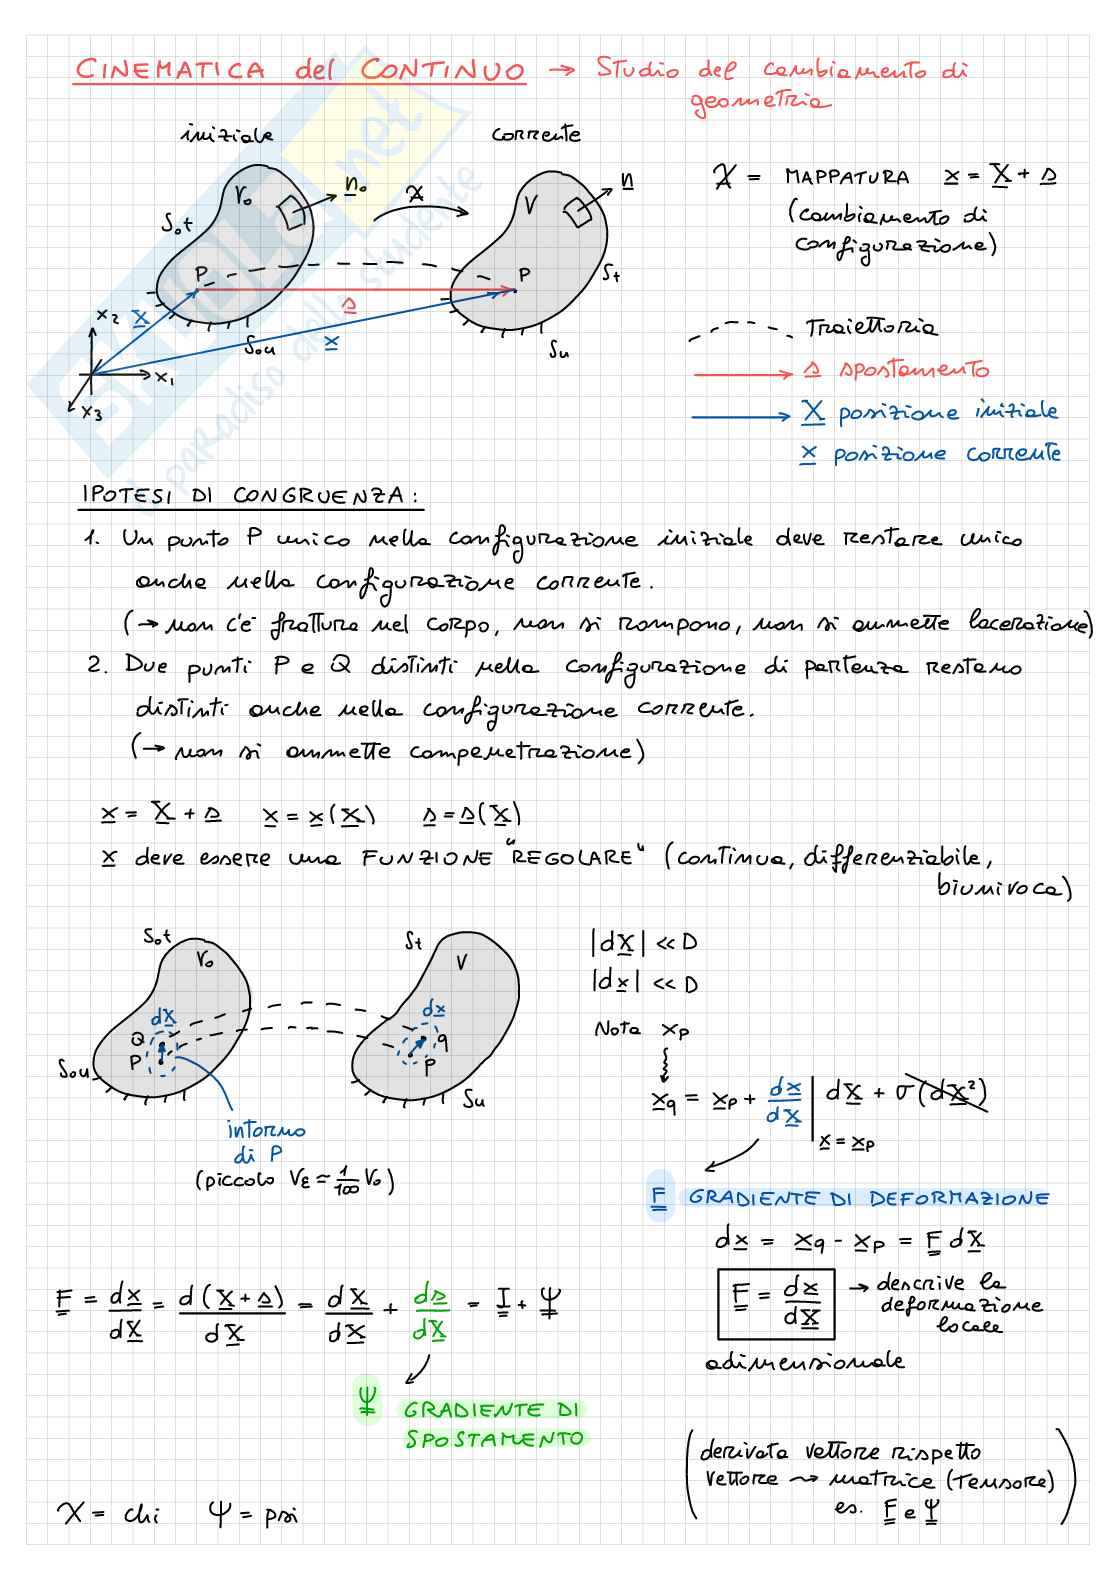 CINEMATICA del CONTINUO → Studio del cambiamento di
geometria
iniziale
corrente
V₀
n₀
χ
V
n
S₀t
St
P
P
s
X
x
S₀u
Su
x₂
x₁
x₃
χ = MAPPATURA x = X + s
(cambiamento di
configurazione)
Traiettoria
s spostamento
X posizione iniziale
x posizione corrente
IPOTESI DI CONGRUENZA:
1. Un punto P unico nella configurazione iniziale deve restare unico
anche nella configurazione corrente.
(→ non c'è frattura nel corpo, non si rompono, non si ammette lacerazione)
2. Due punti P e Q distinti nella configurazione di partenza restano
distinti anche nella configurazione corrente.
(→ non si ammette compenetrazione)
x = X + s x = x(X) s = s(X)
x deve essere una FUNZIONE "REGOLARE" (continua, differenziabile,
biunivoca)
S₀t
V₀
dX
Q
P
S₀u
intorno
di P
(piccolo Vε ≃ 1/100 V₀)
St
V
dx
q
P
Su
|dX| << D
|dx| << D
Nota xp
xq = xp + dx/dX | dX + σ(dX²)
x = xp
F GRADIENTE DI DEFORMAZIONE
dx = xq - xp = F dX
F = dx/dX → descrive la
deformazione
locale
adimensionale
F = dx/dX = d(X+s)/dX = dX/dX + ds/dX = I + Ψ
Ψ GRADIENTE DI
SPOSTAMENTO
(derivata vettore rispetto
vettore ⇝ matrice (tensore)
es. F e Ψ)
χ = chi Ψ = psi
il paradiso dello studente